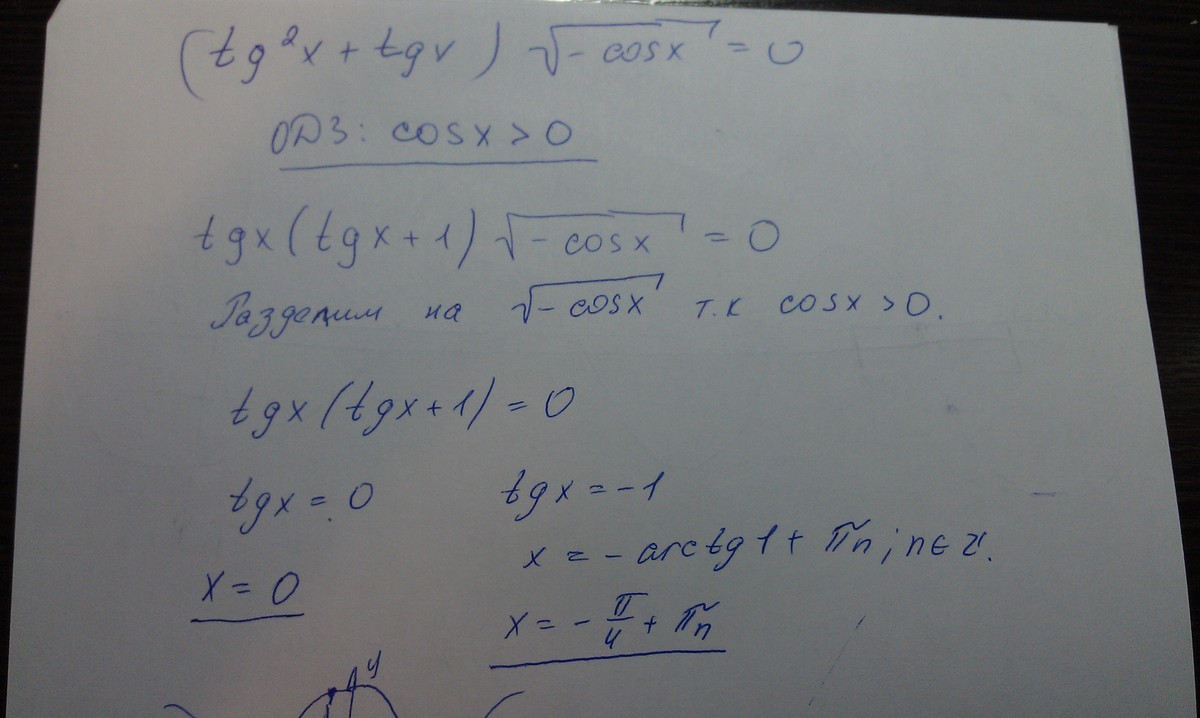 (tg²x + tgx) √-cosx = 0
ОДЗ: cosx > 0
tgx(tgx + 1) √-cosx = 0
Разделим на √-cosx т.к cosx > 0.
tgx(tgx + 1) = 0
tgx = 0 tgx = -1
x = - arctg1 + πn; n∈Z.
x = 0
x = -π/4 + πn
y